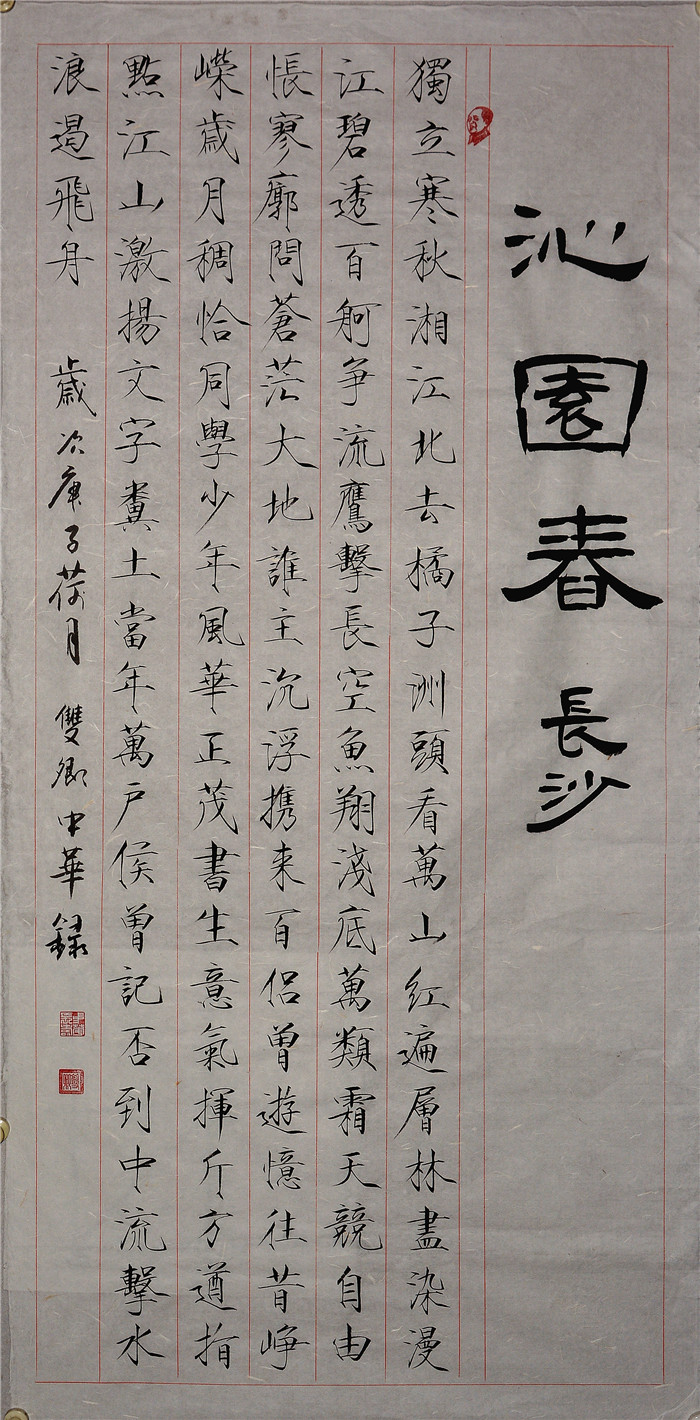 沁園春 長沙
獨立寒秋湘江北去橘子洲頭看萬山紅遍層林盡染漫
江碧透百舸争流鷹擊長空魚翔淺底萬類霜天競自由
悵寥廓問蒼茫大地誰主沉浮携来百侣曾遊憶往昔崢
嶸歲月稠恰同學少年風華正茂書生意氣揮斥方遒指
點江山激揚文字糞土當年萬户侯曾記否到中流擊水
浪遏飛舟 歲次庚子荷月 雙卿中華錄